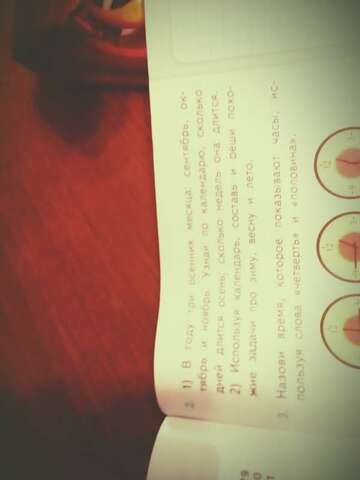 2. 1) В году три осенних месяца: сентябрь, ок-
тябрь и ноябрь. Узнай по календарю, сколько
дней длится осень, сколько недель она длится.
2) Используя календарь, составь и реши похо-
жие задачи про зиму, весну и лето.
3. Назови время, которое показывают часы, ис-
пользуя слова «четверть» и «половина».
12
12
12